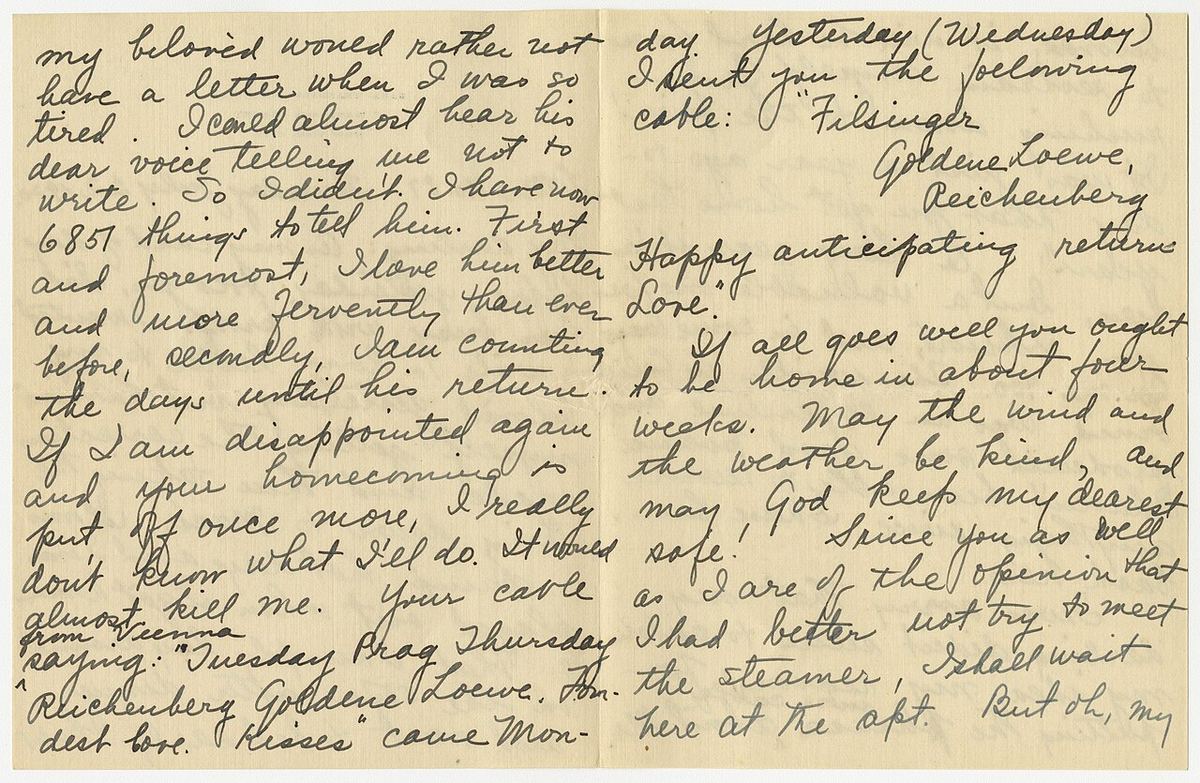 my beloved would rather not
have a letter when I was so
tired. I could almost hear his
dear voice telling me not to
write. So I didn't. I have now
6851 things to tell him. First
and foremost, I love him better
and more fervently than ever
before, secondly, I am counting
the days until his return.
If I am disappointed again
and your homecoming is
put off once more, I really
don't know what I'll do. It would
almost kill me. Your cable
from Vienna
^saying: "Tuesday Prag Thursday
Reichenberg Goldene Loewe. Fon-
dest love. Kisses" came Mon-
day. Yesterday (Wednesday)
I sent you the following
cable: "Filsinger
Goldene Loewe,
Reichenberg
Happy anticipating return
Love."
If all goes well you ought
to be home in about four
weeks. May the wind and
the weather be kind, and
may God keep my dearest
safe! Since you as well
as I are of the opinion that
I had better not try to meet
the steamer, I shall wait
here at the apt. But oh, my